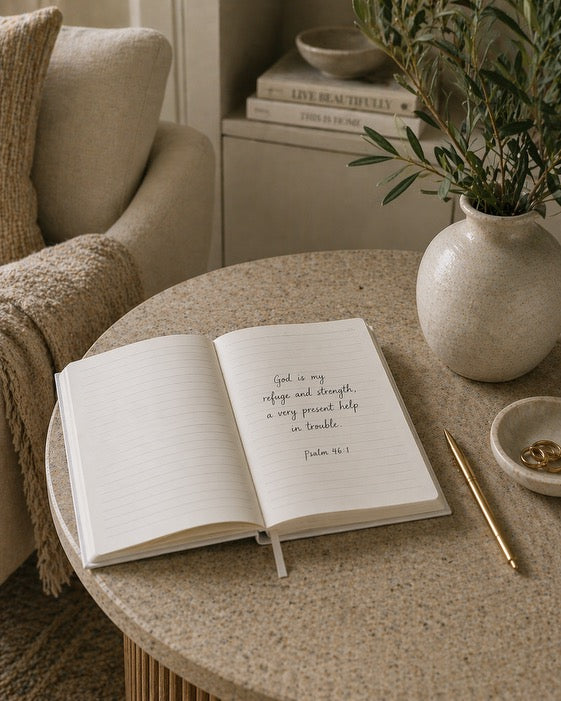 LIVE BEAUTIFULLY
THIS IS HOME
God is my
refuge and strength,
a very present help
in trouble.
Psalm 46:1